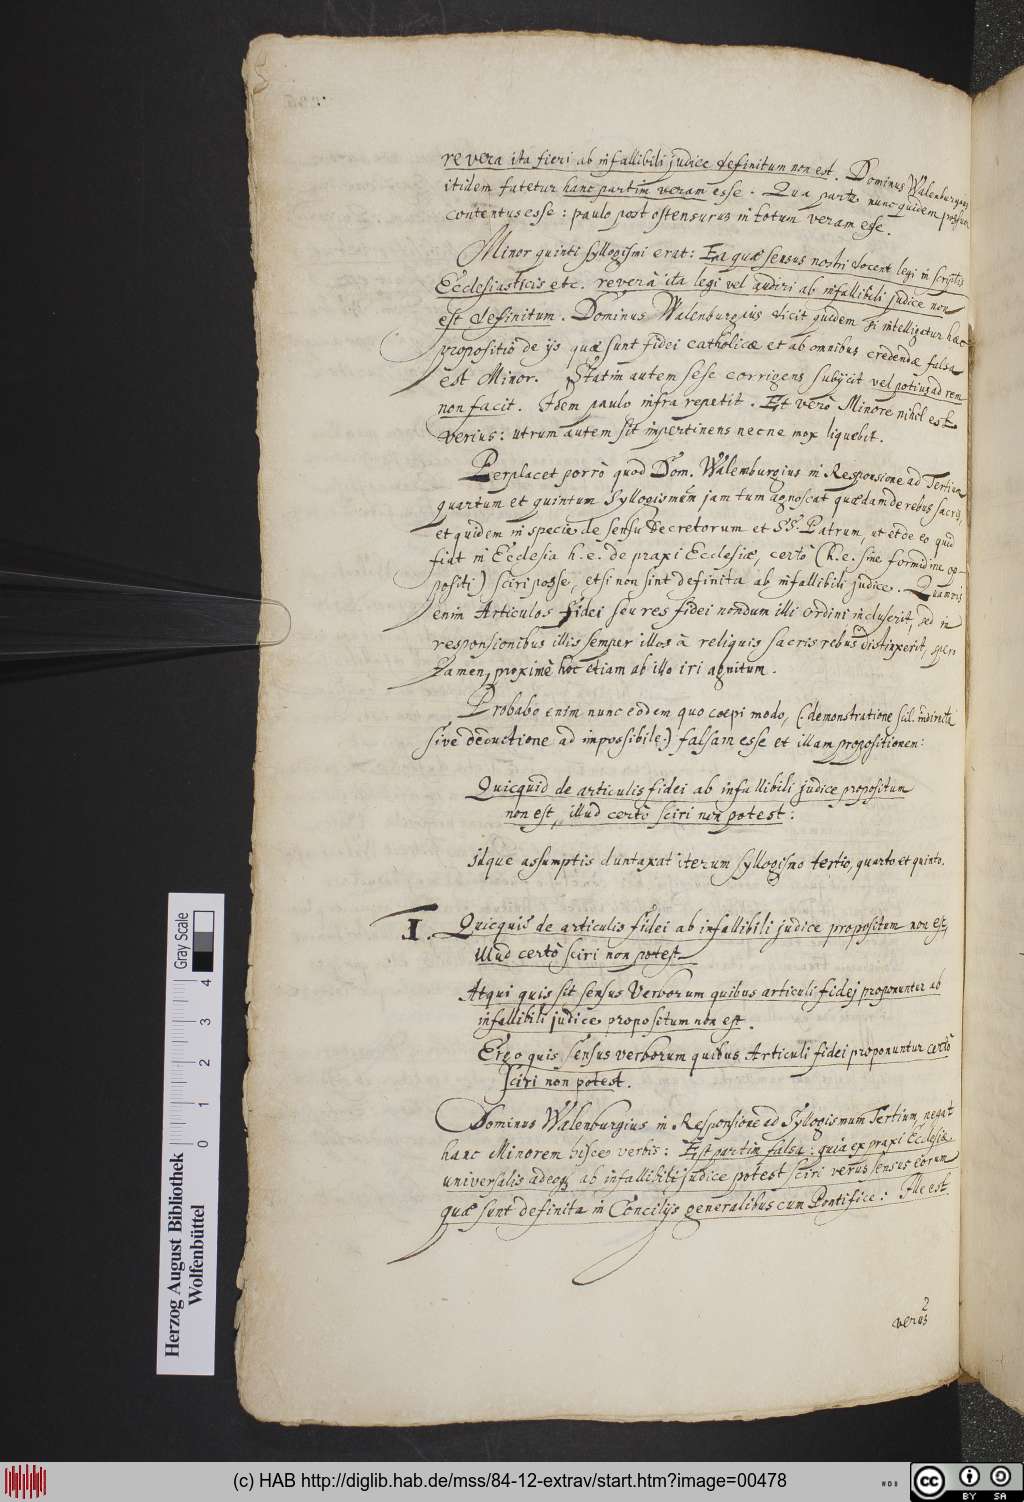 revera ita fieri ab infallibili judice definitum non est. Dominus Walenburgius
itidem fatetur hanc partim veram esse. Qua parte nunc quidem possum
contentus esse: paulo post ostensurus in totum veram esse.
Minor quinti syllogismi erat: Ea quæ sensus nostri docent legi in scriptis
Ecclesiasticis etc. reverà ita legi vel audiri ab infallibili judice non
est definitum. Dominus Walenburgius dicit quidem si intelligatur hæc
propositio de ijs quæ sunt fidei catholicæ et ab omnibus credendæ falsa
est Minor. Statim autem sese corrigens subijcit vel potius ad rem
non facit. Idem paulo infra repetit. Et verò Minore nihil est
verius: utrum autem sit impertinens necne mox liquebit.
Perplacet porrò quod Dom. Walemburgius in Responsione ad Tertium
quartum et quintum Syllogismum jam tum agnoscat quædam de rebus sacris,
et quidem in specie de sensu Decretorum et SS. Patrum, ut et de eo quid
fiat in Ecclesia h. e. de praxi Ecclesiæ, certò (h. e. sine formidine op-
positi) sciri posse, etsi non sint definita ab infallibili judice. Quamvis
enim Articulos fidei seu res fidei nondum illi ordini incluserit, sed in
responsionibus illis semper illos à reliquis sacris rebus distinxerit, spero
tamen, proximè hoc etiam ab illo iri agnitum.
Probabo enim nunc eodem quo coepi modo, (demonstratione scil. indirecta
sive deductione ad impossibile) falsam esse et illam propositionem:
Quicquid de articulis fidei ab infallibili judice propositum
non est, illud certò sciri non potest:
idque assumptis duntaxat iterum syllogismo tertio, quarto et quinto.
I. Quicquid de articulis fidei ab infallibili judice propositum non est,
illud certò sciri non potest
Atqui quis sit sensus Verborum quibus articuli fidej proponuntur ab
infallibili judice propositum non est.
Ergo quis sensus verborum quibus Articuli fidei proponuntur certò
sciri non potest.
Dominus Walenburgius in Responsione ad Syllogismum Tertium, negat
hanc Minorem hisce verbis: Est partim falsa: quia ex praxi Ecclesiæ
universalis adeoque ab infallibili judice potest sciri verus sensus eorum
quæ sunt definita in Concilijs generalibus cum Pontifice: Ille est
verus
Gray Scale
0 1 2 3 4
Herzog August Bibliothek
Wolfenbüttel
(c) HAB http://diglib.hab.de/mss/84-12-extrav/start.htm?image=00478
WDB
cc
BY SA